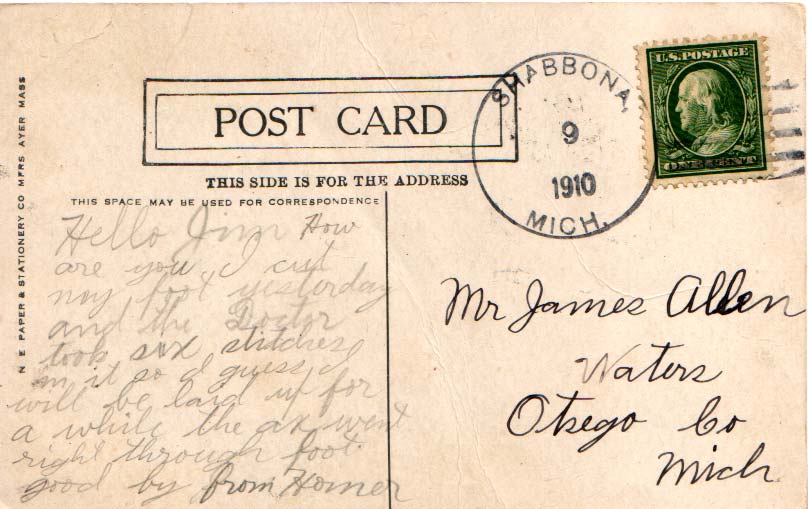 U.S. POSTAGE
ONE CENT
SHABBONA,
9
1910
MICH.
POST CARD
THIS SIDE IS FOR THE ADDRESS
THIS SPACE MAY BE USED FOR CORRESPONDENCE
N E PAPER & STATIONERY CO MFRS AYER MASS
Hello Jim How
are you. I cut
my foot yesterday
and the Doctor
took six stitches
in it so I guess I
will be laid up for
a while the ax went
right through foot.
good by from Homer
Mr James Allen
Waters
Otsego Co
Mich